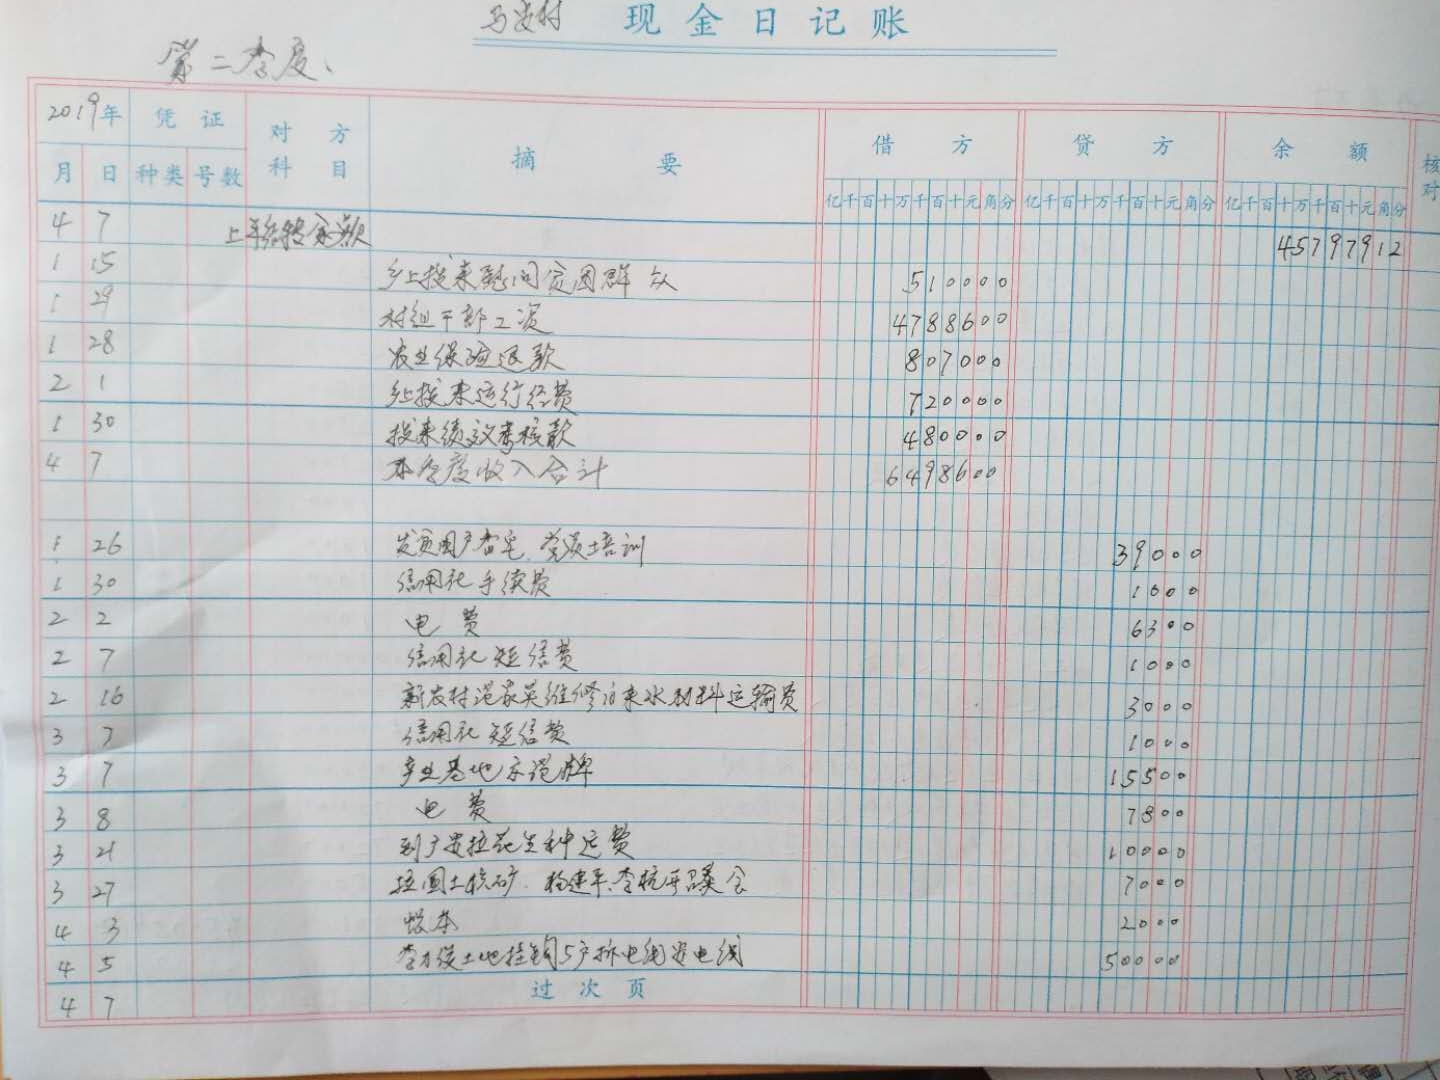 马安村 现金日记账
第二季度、
2019年 凭证 对方科目 摘要 借方 贷方 余额 核对
月 日 种类 号数 亿千百十万千百十元角分 亿千百十万千百十元角分 亿千百十万千百十元角分
4 7 上年结转余款 45797912
1 15 乡上拨来慰问贫困群众 510000
1 29 村组干部工资 4788600
1 28 农业保险退款 807000
2 1 乡上拨来运行经费 720000
1 30 拨来绩效考核款 480000
4 7 本季度收入合计 6498600
1 26 39000
1 30 信用社手续费 1000
2 2 电费 6300
2 7 信用社短信费 1000
2 16 新农村 维修自来水材料运输费 3000
3 7 信用社短信费 1000
3 7 产业基地示范牌 15500
3 8 电费 7800
3 21 到 安拉花生种运费 10000
3 27 7000
4 3 2000
4 5 土地挂钩5户拆电线安电线 50000
4 7 过次页